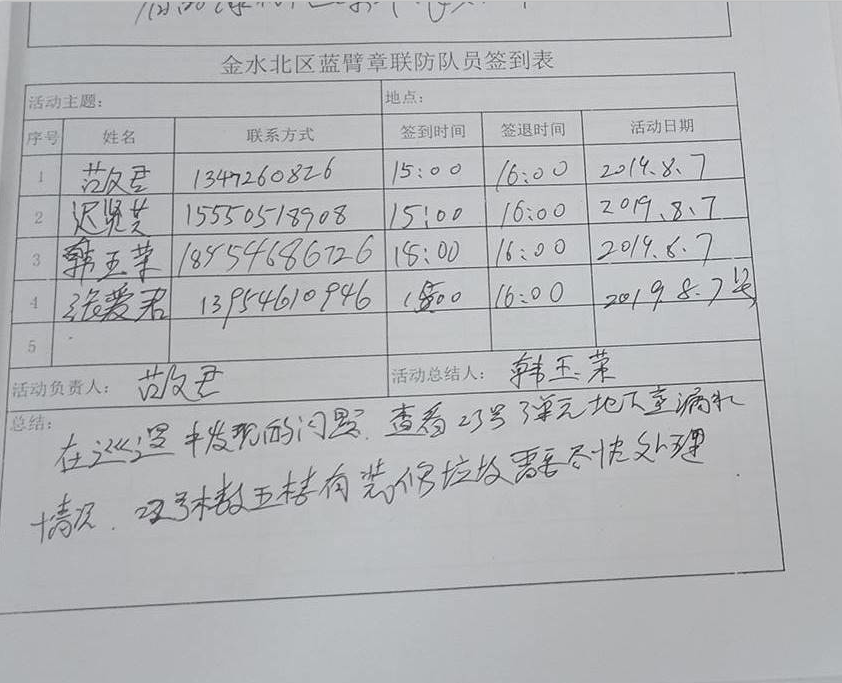 金水北区蓝臂章联防队员签到表
活动主题: 地点:
序号 姓名 联系方式 签到时间 签退时间 活动日期
1 范文君 1347260826 15:00 16:00 2019.8.7
2 迟贤芸 15550518908 15:00 16:00 2019.8.7
3 韩玉荣 18454686726 15:00 16:00 2019.8.7
4 张爱君 13954610946 15:00 16:00 2019.8.7号
5
活动负责人: 范文君 活动总结人: 韩玉荣
总结:
在巡逻中发现的问题.查看23号3单元地下室漏水
情况.号楼五楼有装修垃圾需要尽快处理